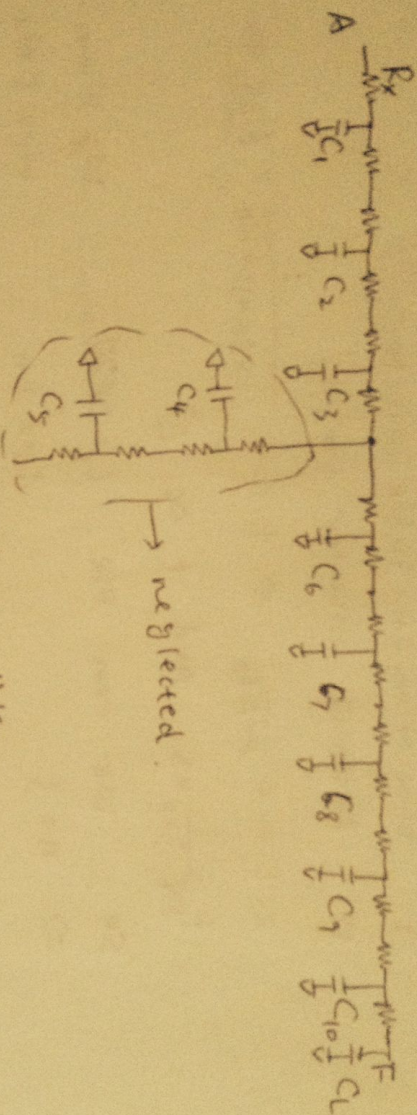 A
Rx
C1
C2
C3
C4
C5
neglected.
C6
C7
C8
C9
C10
F
CL